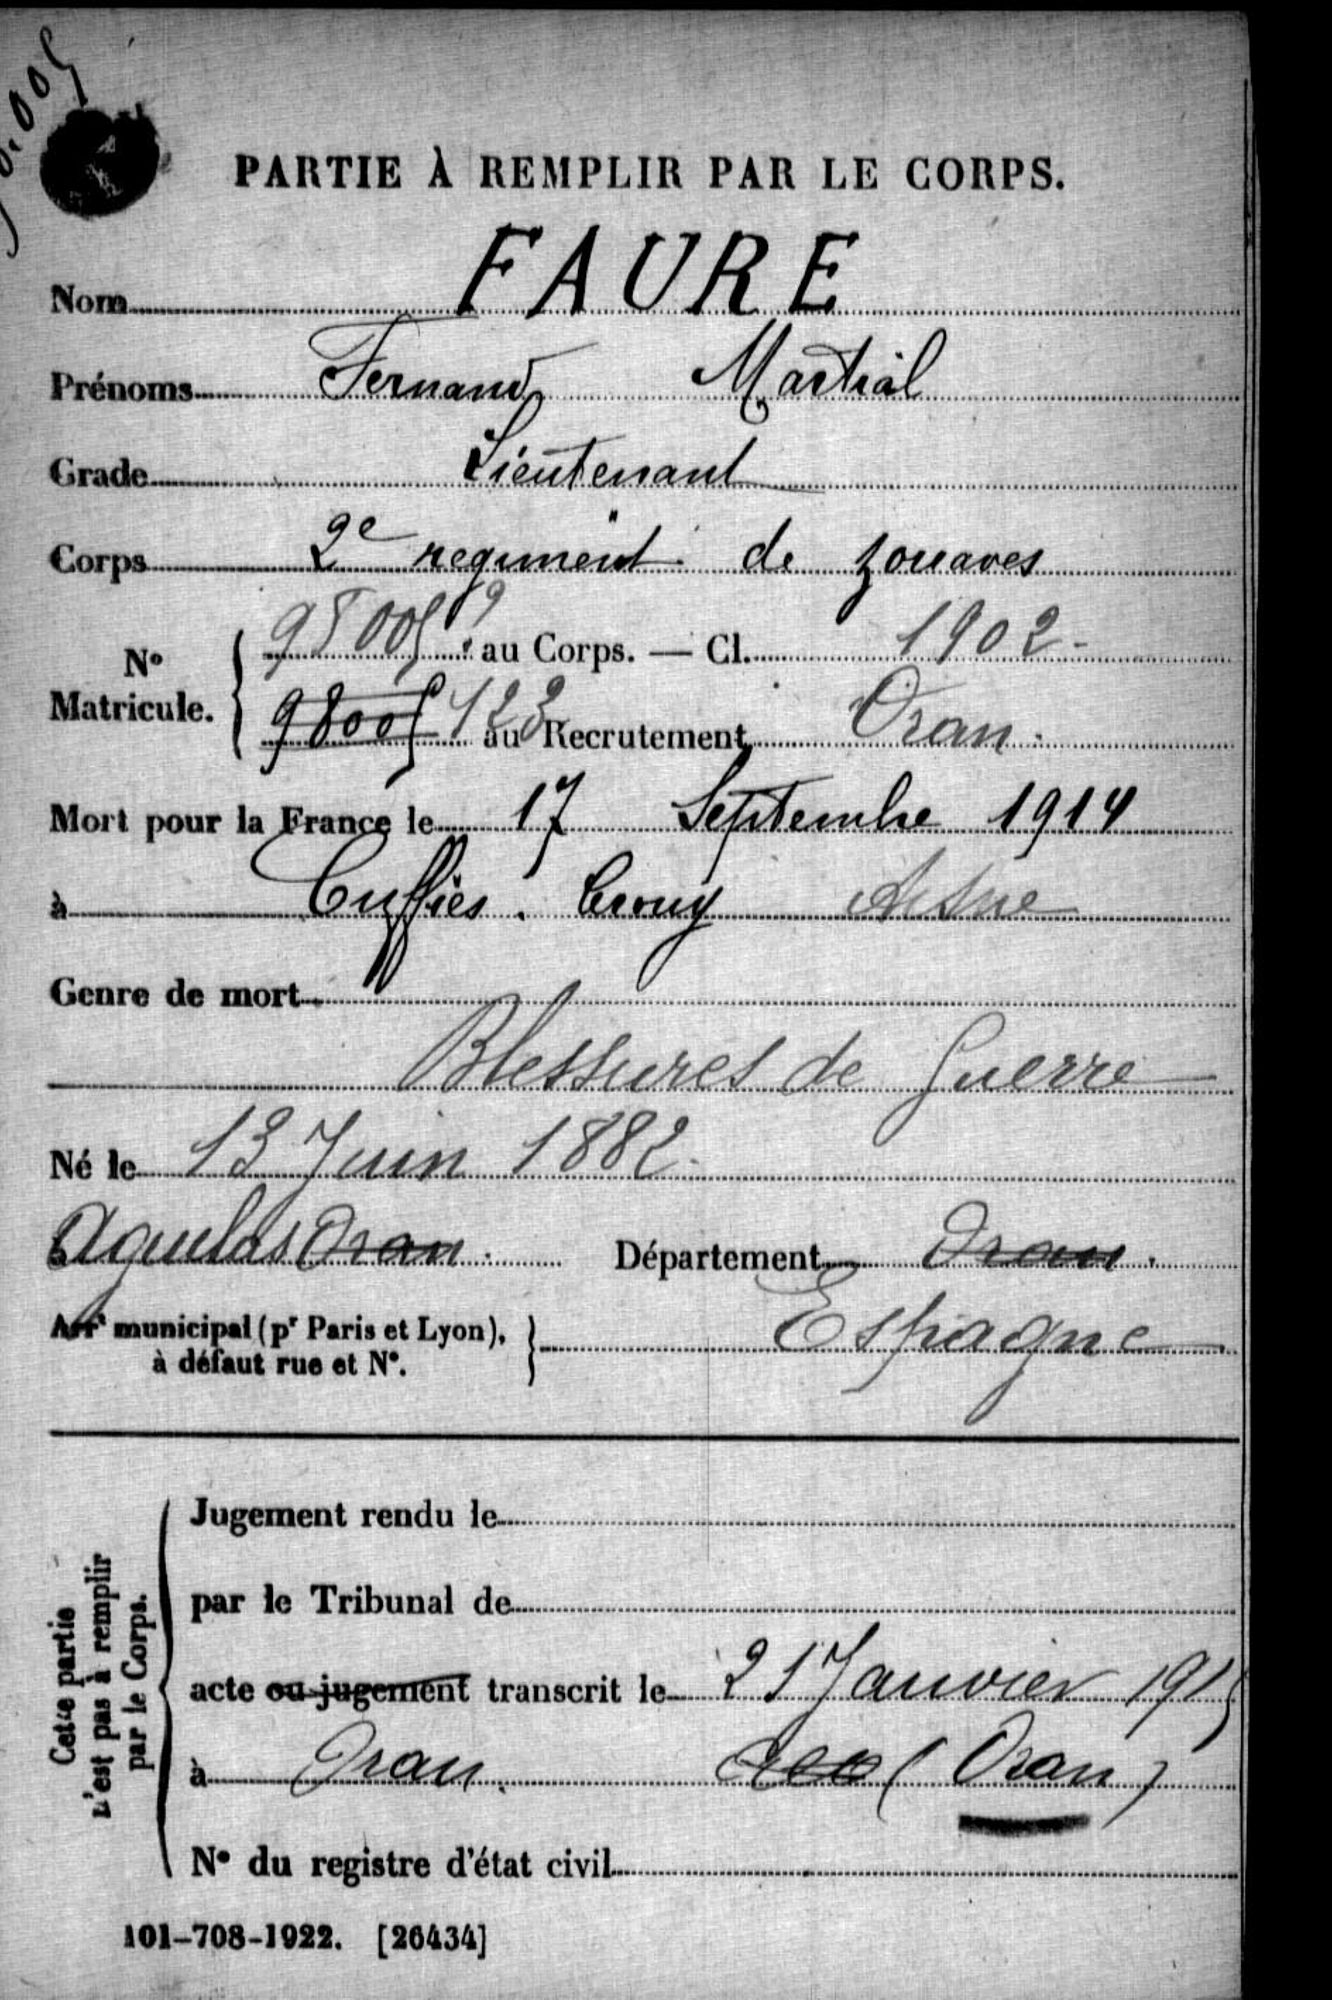 PARTIE À REMPLIR PAR LE CORPS.
Nom FAURE
Prénoms Fernand Martial
Grade Lieutenant
Corps 2e regiment de zouaves
N° Matricule. 98005 ? au Corps. — Cl. 1902 -
98005 123 au Recrutement Oran.
Mort pour la France le 17 Septembre 1914
à Cuffies. Crouy Aisne
Genre de mort
Blessures de Guerre
Né le 13 Juin 1882.
à Aguilas Oran. Département Oran.
Arrt municipal (pr Paris et Lyon), Espagne
à défaut rue et N°.
Cette partie
n'est pas à remplir
par le Corps.
Jugement rendu le
par le Tribunal de
acte ou jugement transcrit le 21 Janvier 1915
à Oran. (Oran)
N° du registre d'état civil
101-708-1922. [26434]